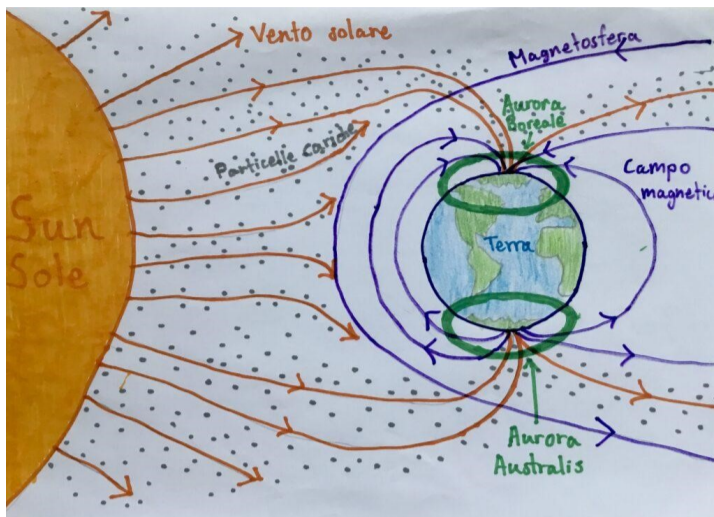 Vento solare
Magnetosfera
Aurora
Boreale
Particelle cariche
Campo
magnetic
Sun
Sole
Terra
Aurora
Australis